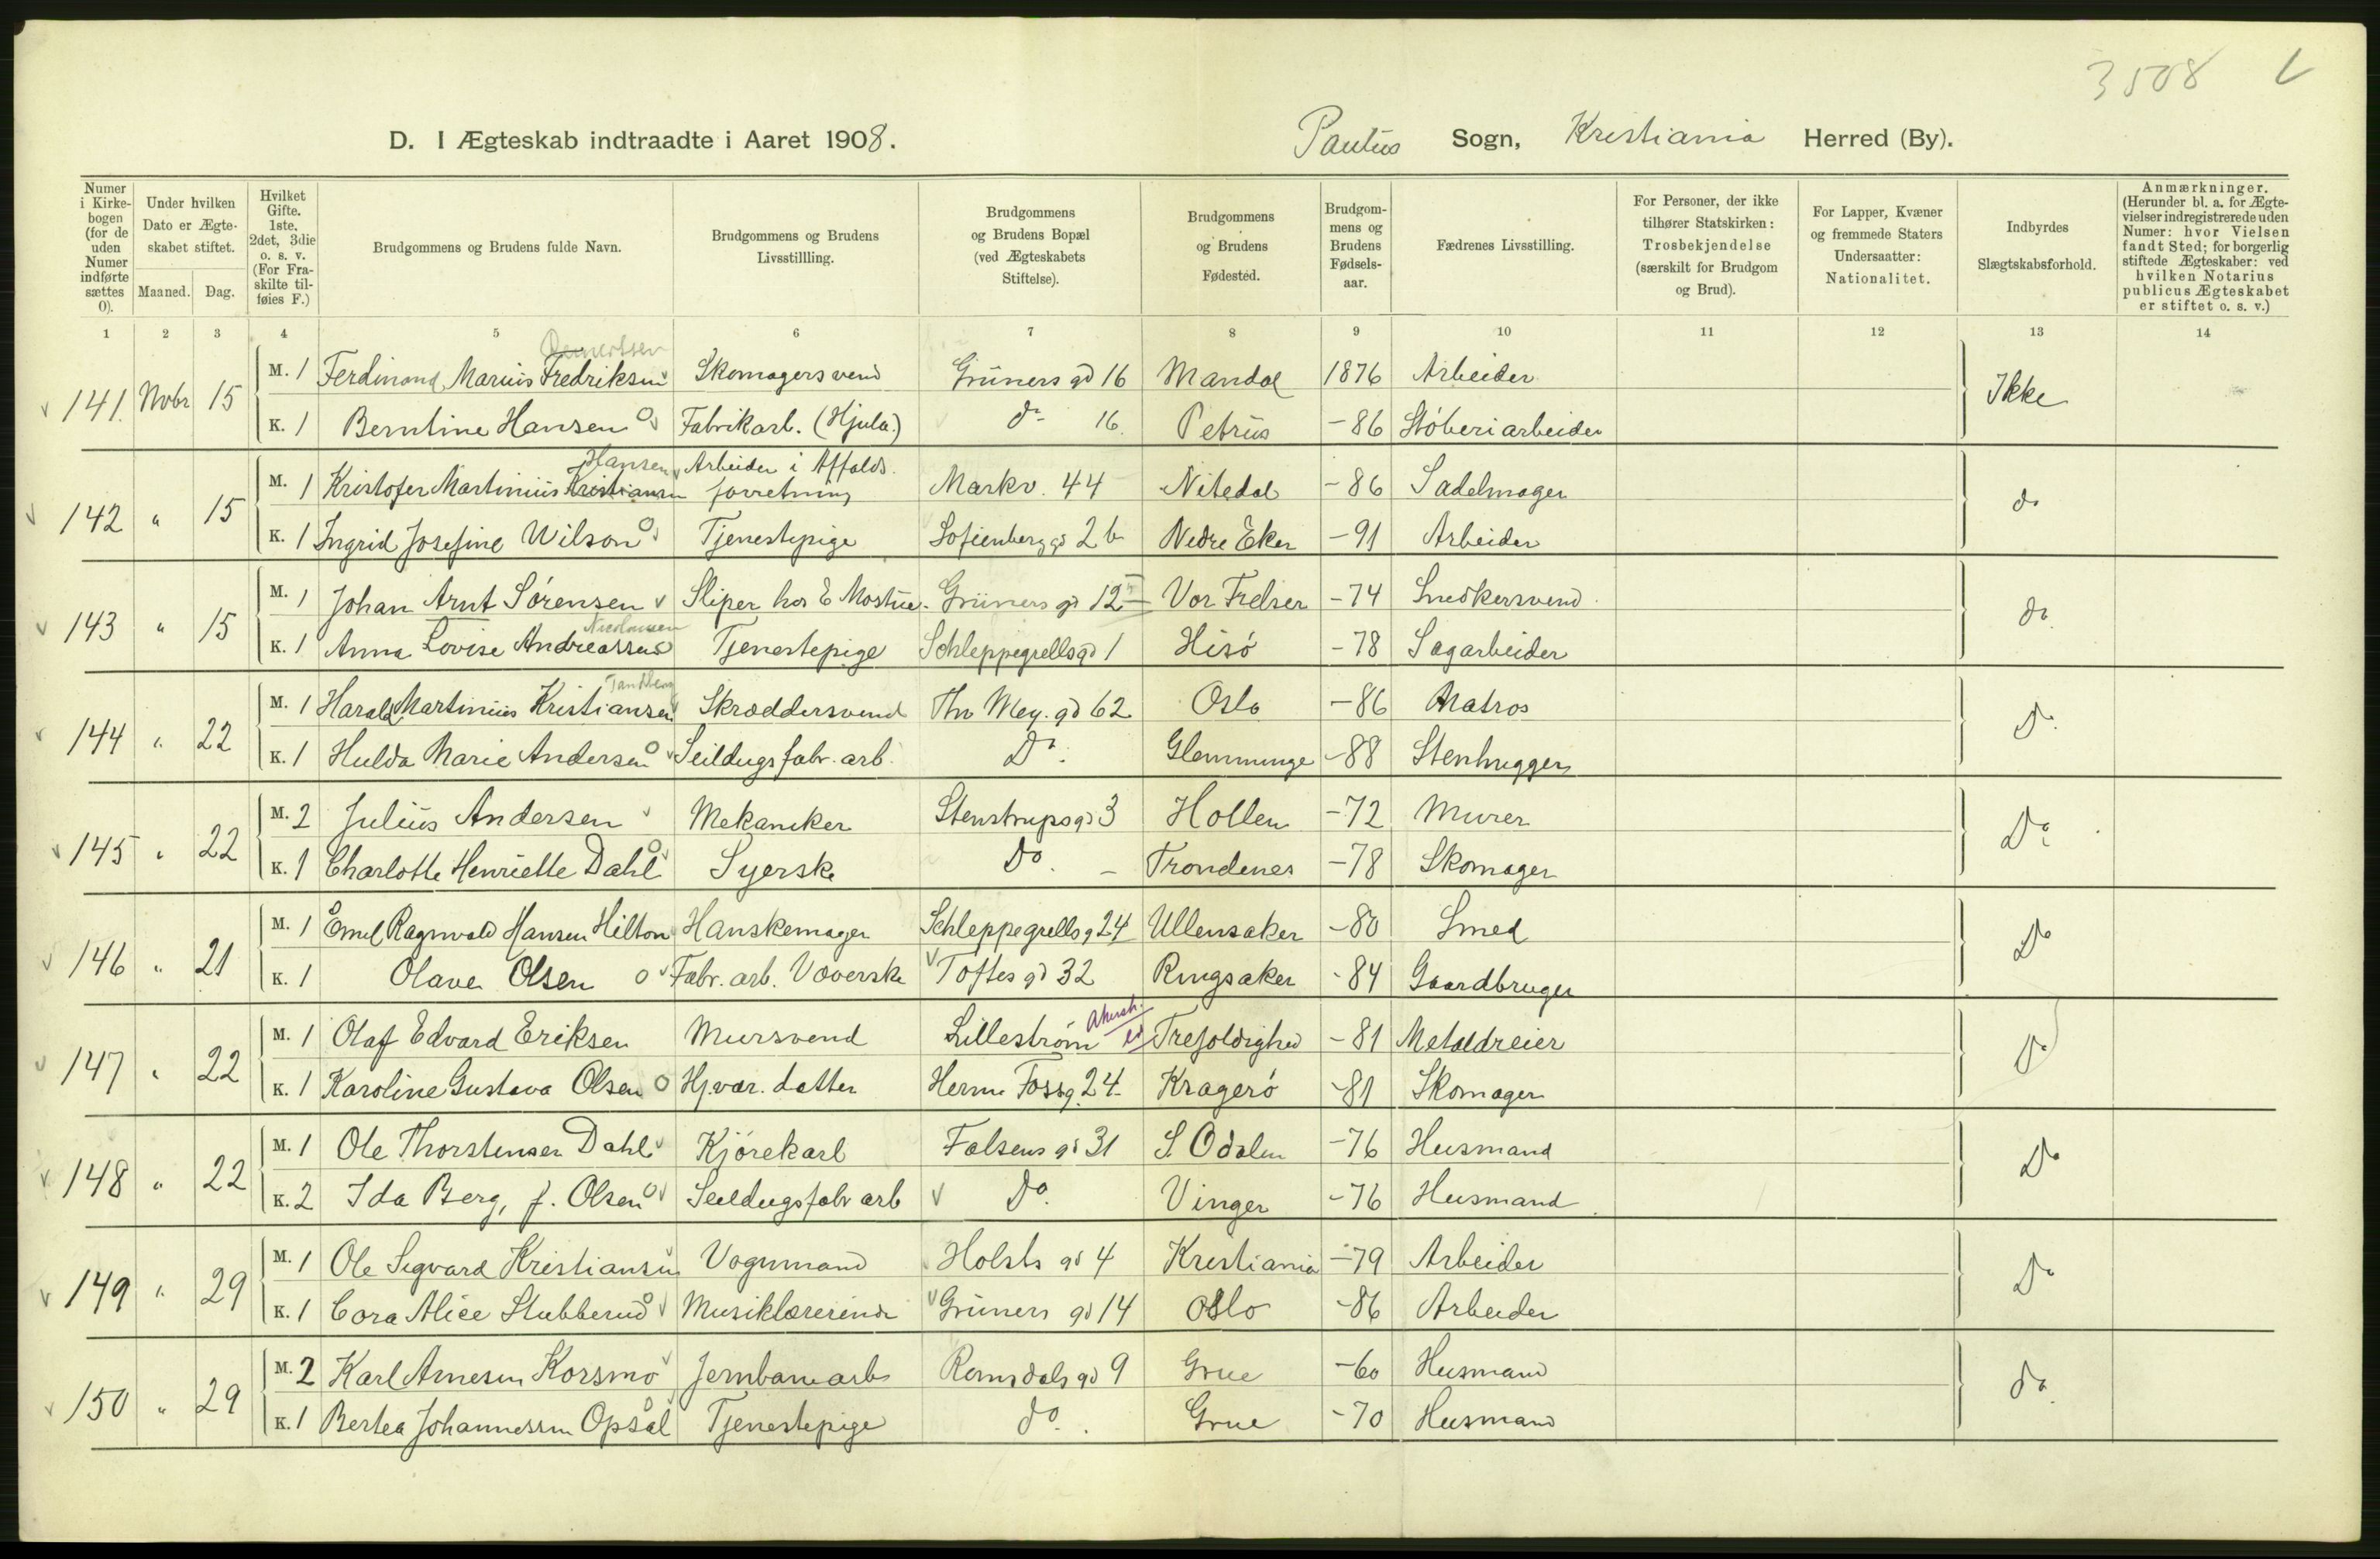 3508
D. I Ægteskab indtraadte i Aaret 1908. Paulus Sogn, Kristiania Herred (By).
Numer i Kirkebogen (for de uden Numer indførte sættes 0).
Under hvilken Dato er Ægteskabet stiftet.
Maaned. Dag.
Hvilket Gifte. 1ste, 2det, 3die o. s. v. (For Fraskilte tilføies F.)
Brudgommens og Brudens fulde Navn.
Brudgommens og Brudens Livsstillling.
Brudgommens og Brudens Bopæl (ved Ægteskabets Stiftelse).
Brudgommens og Brudens Fødested.
Brudgommens og Brudens Fødselsaar.
Fædrenes Livsstilling.
For Personer, der ikke tilhører Statskirken: Trosbekjendelse (særskilt for Brudgom og Brud).
For Lapper, Kvæner og fremmede Staters Undersaatter: Nationalitet.
Indbyrdes Slægtskabsforhold.
Anmærkninger. (Herunder bl. a. for Ægtevielser indregistrerede uden Numer: hvor Vielsen fandt Sted; for borgerlig stiftede Ægteskaber: ved hvilken Notarius publicus Ægteskabet er stiftet o. s. v.)
1 2 3 4 5 6 7 8 9 10 11 12 13 14
141 Novbr 15 M. 1 Ferdinand Marius Fredriksen Skomagersvend Grüners gd 16 Mandal 1876 Arbeider Ikke
K. 1 Berntine Hansen Fabrikarb. (Hjula.) do 16 Petrus -86 Stöberiarbeider
Hansen
142 " 15 M. 1 Kristofer Martinius Kristiansen Arbeider i Affalds forretning Markv. 44 Nitedal -86 Sadelmager do
K. 1 Ingrid Josefine Wilson Tjenestepige Sofienberg gd 2b Nedre Eker -91 Arbeider
143 " 15 M. 1 Johan Arnt Sörensen Sliper hos E Mostue Grüners gd 12 Vor Frelser -74 Snedkersvend do
Nicolaisen
K. 1 Anna Lovise Andreassen Tjenestepige Schleppegrells gd 1 Hisö -78 Sagarbeider
Tandberg
144 " 22 M. 1 Harald Martinius Kristiansen Skræddersvend Thv Mey. gd 62 Oslo -86 Matros Do
K. 1 Hulda Marie Andersen Seildugsfabr. arb. Do. Glemminge -88 Stenhugger
145 " 22 M. 2 Julius Andersen Mekaniker Stenstrups gd 3 Hollen -72 Murer Do
K. 1 Charlotte Henriette Dahl Syerske Do. Trondenes -78 Skomager
146 " 21 M. 1 Emil Ragnvald Hansen Hilton Hanskemager Schleppegrells g 24 Ullensaker -80 Smed Do
K. 1 Olave Olsen Fabr. arb. Væverske Toftes gd 32 Ringsaker -84 Gaardbruger
147 " 22 M. 1 Olaf Edvard Eriksen Mursvend Lilleström Trefoldighed -81 Metaldreier Do
K. 1 Karoline Gustava Olsen Hj.vær. datter Herm. Fossg. 24 Kragerö -81 Skomager
148 " 22 M. 1 Ole Thorstensen Dahl Kjörekarl Falsens gd 31 S Odalen -76 Husmand Do
K. 2 Ida Berg, f. Olsen Seildugsfabr arb Do. Vinger -76 Husmand
149 " 29 M. 1 Ole Sigvard Kristiansen Vognmand Holsts gd 4 Kristiania -79 Arbeider Do
K. 1 Cora Alice Stubberud Musiklærerinde Grüners gd 14 Oslo -86 Arbeider
150 " 29 M. 2 Karl Arnesen Korsmo Jernbanearb Romsdals gd 9 Grue -60 Husmand do
K. 1 Bertea Johannessen Opsal Tjenestepige do. Grue -70 Husmand